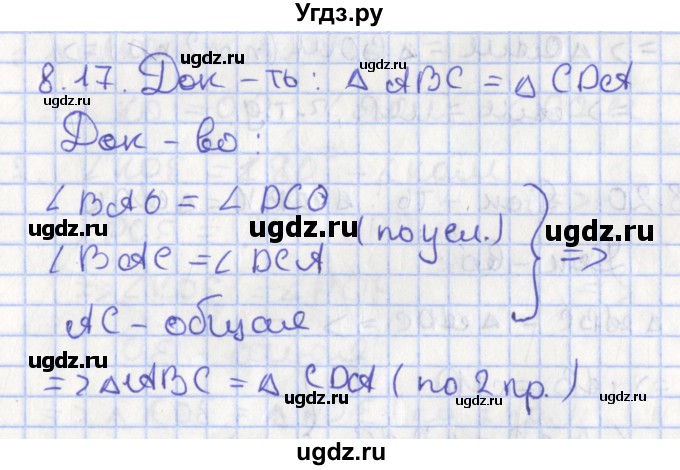 Угдз.ру
8.17. Док-ть: △ ABC = △ CDA
Док-во:
∠ BAO = ∠ DCO
(по усл.)
∠ BAC = ∠ DCA
=>
AC - общая
=> △ ABC = △ CDA (по 2 пр.)
ugdz.ru
ugdz.ru
ugdz.ru
ugdz.ru
ugdz.ru
ugdz.ru
ugdz.ru
ugdz.ru
ugdz.ru
ugdz.ru
ugdz.ru
ugdz.ru
ugdz.ru